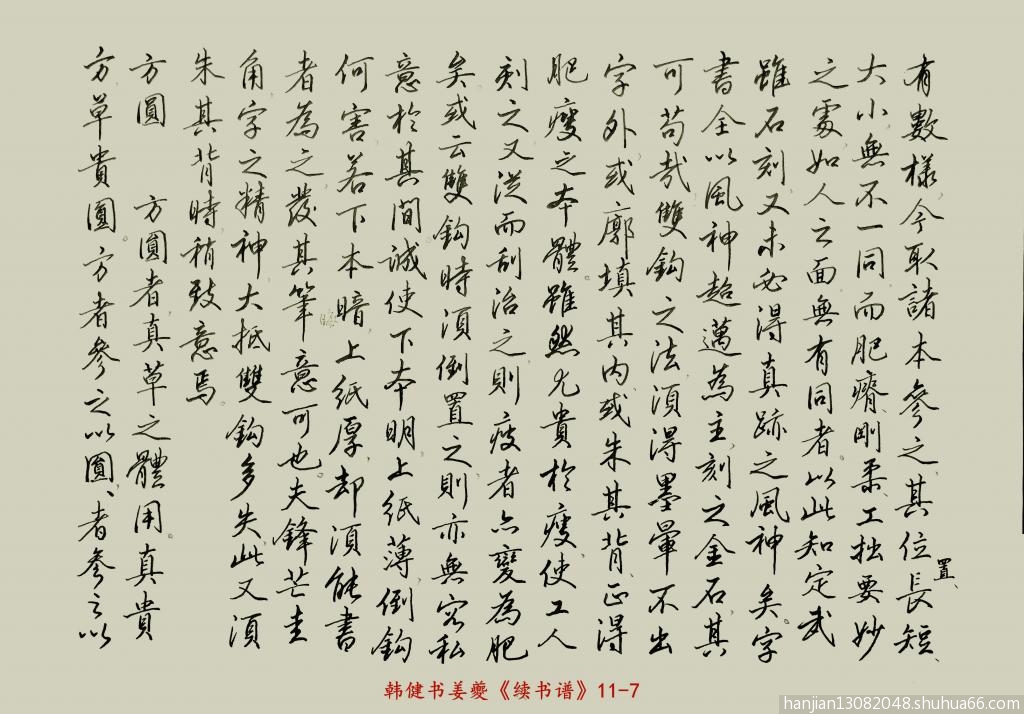 有數樣今取諸本參之其位置長短
大小無不一同而肥瘠剛柔工拙要妙
之處如人之面無有同者以此知定武
雖石刻又未必得真跡之風神矣字
書全以風神超邁為主刻之金石其
可苟哉雙鈎之法須得墨暈不出
字外或廓填其内或朱其背正得
肥瘦之本體雖然尤貴於瘦使工人
刻之又從而刮治之則瘦者亦變為肥
矣或云雙鈎時須倒置之則亦無容私
意於其間誠使下本明上紙薄倒鈎
何害若下本暗上紙厚却須能書
者為之發其筆意可也夫鋒芒圭
角字之精神大抵雙鈎多失此又須
朱其背時稍致意焉
方圓 方圓者真草之體用真貴
方草貴圓方者參之以圓、者參之以
韩健书姜夔《续书谱》11-7
hanjian13082048.shuhua66.com